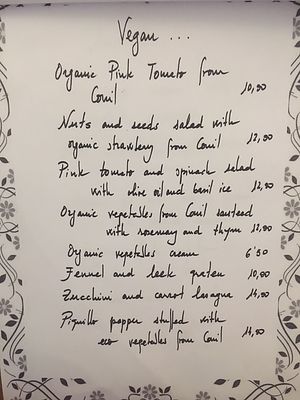 Vegan ...
Organic Pink Tomato from
Conil 10,90
Nuts and seeds salad with
organic strawberry from Conil 12,90
Pink tomato and spinach salad
with olive oil and basil ice 12,90
Organic vegetables from Conil sauteed
with rosemary and thym 12,90
Organic vegetables cream 6'50
Fennel and leek graten 10,90
Zucchini and carrot lasagna 14,90
Piquillo pepper stuffed with
eco vegetables from Conil 14,90